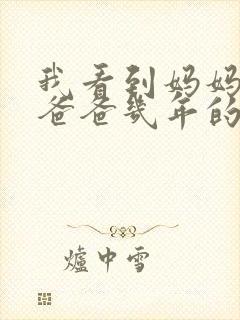 我看到妈妈
爸爸几年的
爐中雪